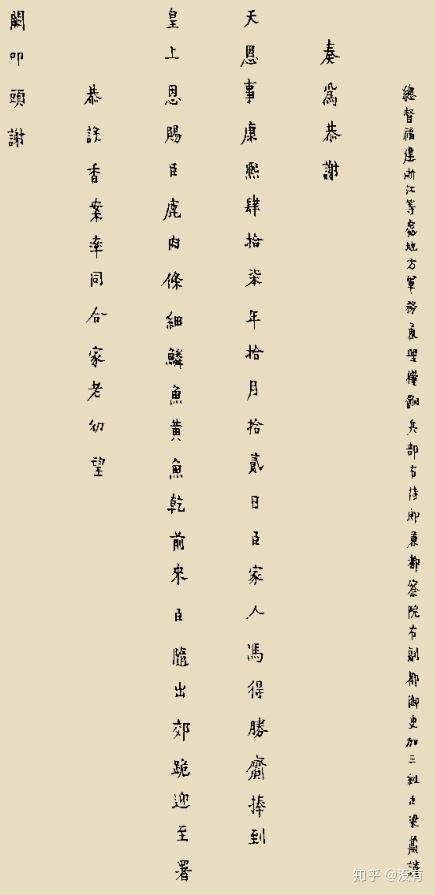 總督福建浙江等處地方軍務兼理糧餉兵部右侍郎兼都察院右副都御史加三級臣梁鼐謹
奏爲恭謝
天恩事康熙肆拾柒年拾月拾貳日臣家人馮得勝齎捧到
皇上恩賜臣鹿肉條細鱗魚黃魚乾前來臣隨出郊跪迎至署
恭設香案率同合家老幼望
闕叩頭謝
知乎 @没有